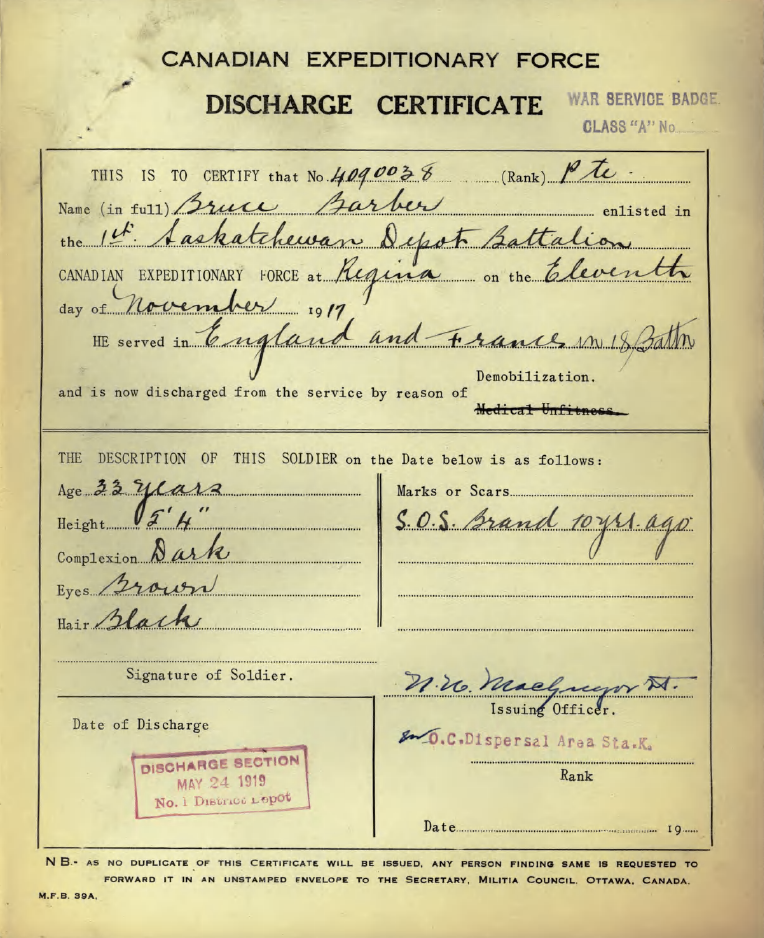 CANADIAN EXPEDITIONARY FORCE
DISCHARGE CERTIFICATE
WAR SERVICE BADGE.
CLASS "A" No
THIS IS TO CERTIFY that No. 4090038 (Rank) Pte.
Name (in full) Bruce Barber enlisted in
the 1st. Saskatchewan Depot Battalion
CANADIAN EXPEDITIONARY FORCE at Regina on the Eleventh
day of November 1917
HE served in England and France in 18 Battn
Demobilization.
and is now discharged from the service by reason of
Medical Unfitness.
THE DESCRIPTION OF THIS SOLDIER on the Date below is as follows:
Age 33 years
Height 5' 4"
Complexion Dark
Eyes Brown
Hair Black
Marks or Scars
S.O.S. Brand 10 yrs. ago
Signature of Soldier.
MacGregor Lt.
Issuing Officer.
O.C. Dispersal Area Sta.K.
Rank
Date of Discharge
DISCHARGE SECTION
MAY 24 1919
No. 1 District Depot
Date 19
N B.- AS NO DUPLICATE OF THIS CERTIFICATE WILL BE ISSUED, ANY PERSON FINDING SAME IS REQUESTED TO
FORWARD IT IN AN UNSTAMPED ENVELOPE TO THE SECRETARY, MILITIA COUNCIL, OTTAWA, CANADA.
M.F.B. 39A.